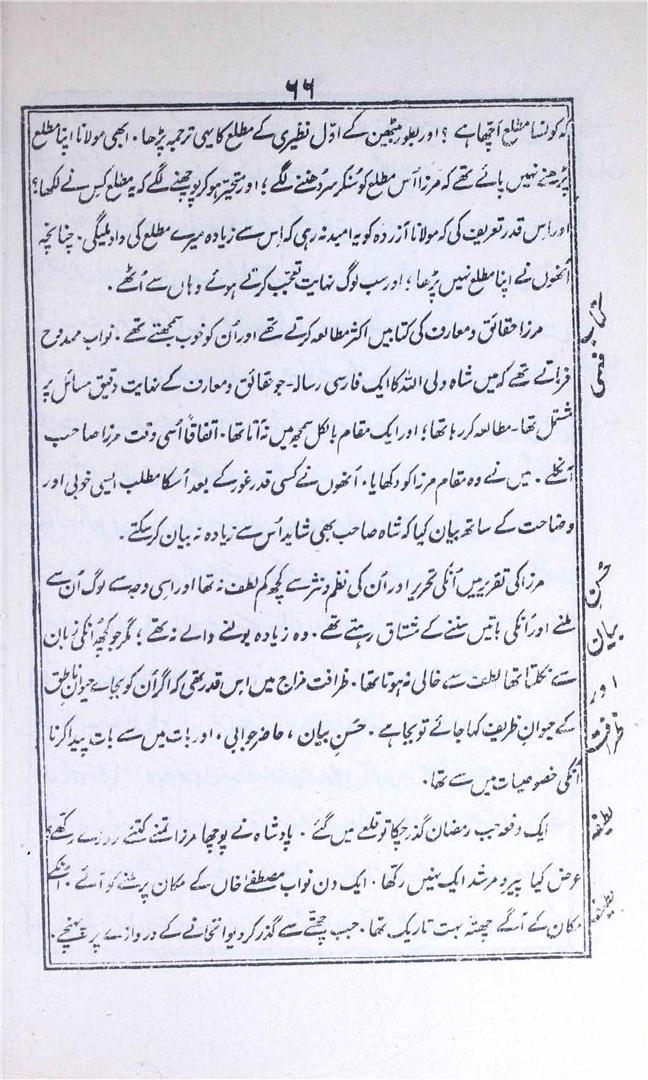 ۶۶
کہ کونسا مطلع اچھا ہے؟ اور بطور مبتھین کے اوّل نظیری کے مطلع کا یہی ترجمہ پڑھا۔ ابھی مولانا اپنا مطلع
پڑھنے نہیں پائے تھے کہ مرزا اُس مطلع کو سُنکر سر دُھننے لگے؛ اور متحیّر ہو کر پوچھنے لگے کہ یہ مطلع کس نے لکھا؟
اور اس قدر تعریف کی کہ مولانا آزردہ کو یہ امید نہ رہی کہ اس سے زیادہ میرے مطلع کی داد ملیگی۔ چنانچہ
اُنھوں نے اپنا مطلع نہیں پڑھا؛ اور سب لوگ نہایت تعجّب کرتے ہوئے وہاں سے اُٹھے۔
کتاب فہمی
مرزا حقائق و معارف کی کتابیں اکثر مطالعہ کرتے تھے اور اُن کو خوب سمجھتے تھے۔ نواب ممدوح
فرماتے تھے کہ میں شاہ ولی اللہ کا ایک فارسی رسالہ - جو حقائق و معارف کے نہایت دقیق مسائل پر
مشتمل تھا - مطالعہ کر رہا تھا؛ اور ایک مقام بالکل سمجھ میں نہ آتا تھا۔ اتفاقاً اُسی وقت مرزا صاحب
آنکلے۔ میں نے وہ مقام مرزا کو دکھایا۔ اُنھوں نے کسی قدر غور کے بعد اُسکا مطلب ایسی خوبی اور
وضاحت کے ساتھ بیان کیا کہ شاہ صاحب بھی شاید اُس سے زیادہ نہ بیان کر سکتے۔
حُسنِ
بیان
اور
ظرافت
مرزا کی تقریر میں اُنکی تحریر اور اُن کی نظم و نثر سے کچھ کم لطف نہ تھا اور اسی وجہ سے لوگ اُن سے
ملنے اور اُنکی باتیں سننے کے مشتاق رہتے تھے۔ وہ زیادہ بولنے والے نہ تھے؛ مگر جو کچھ اُنکی زبان
سے نکلتا تھا لطف سے خالی نہ ہوتا تھا۔ ظرافت مزاج میں اس قدر تھی کہ اگر اُن کو بجاے حیوانِ ناطق
کے حیوانِ ظریف کہا جائے تو بجا ہے۔ حُسنِ بیان، حاضر جوابی، اور بات میں سے بات پیدا کرنا
اُنکی خصوصیات میں سے تھا۔
لطیفہ
ایک دفعہ جب رمضان گذر چکا تو قلعے میں گئے۔ بادشاہ نے پوچھا مرزا تمنے کتنے روزے رکھے؟
عرض کیا پیر و مرشد ایک نہیں رکھا۔ ایک دن نواب مصطفےٰ خاں کے مکان پر ملنے کو آئے۔ اُنکے
لطیفہ
مکان کے آگے چھتہ بہت تاریک تھا۔ جب چھتّے سے گذر کر دیوانخانے کے دروازے پر پہنچے۔